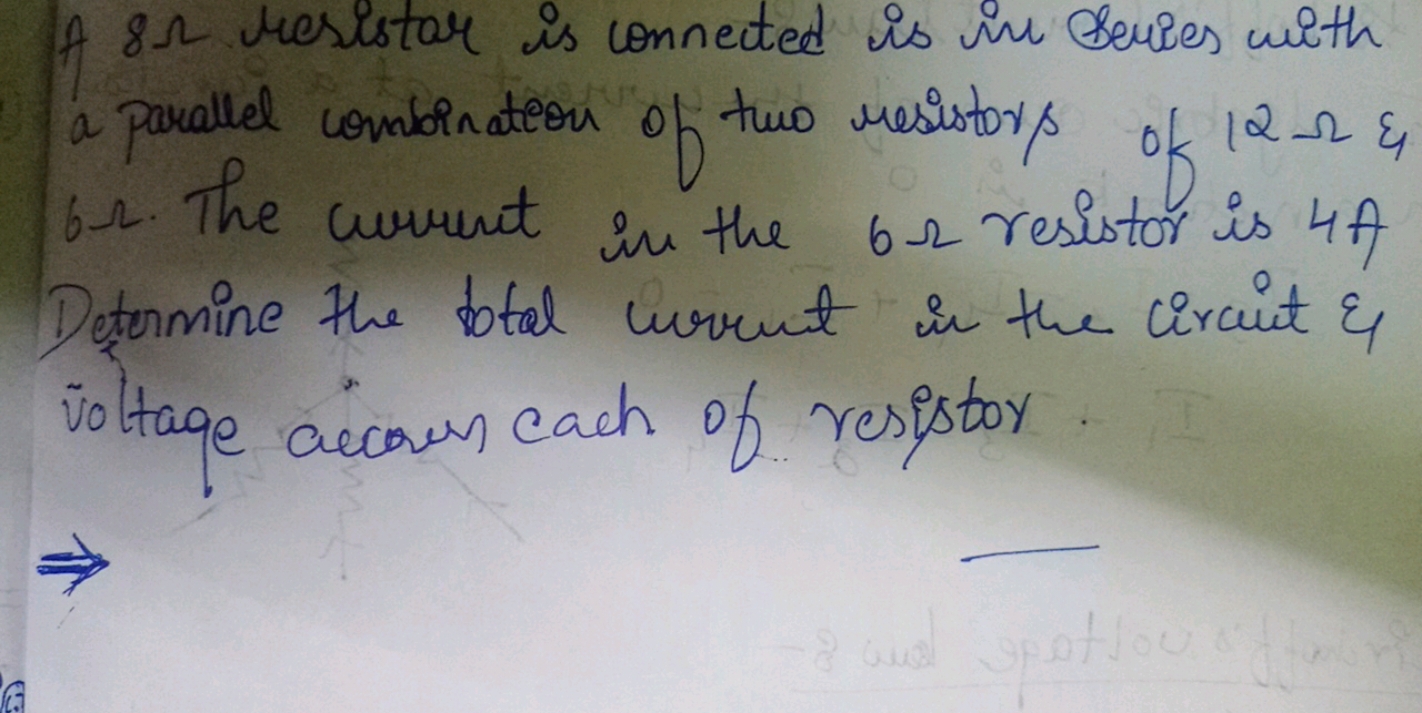 A 8Ω resistor is connected is in series with
a parallel combination of two resistors of 12 Ω &
6Ω. The current in the 6Ω resistor is 4A
Determine the total current in the circuit &
voltage accross each of resistor.
⇒